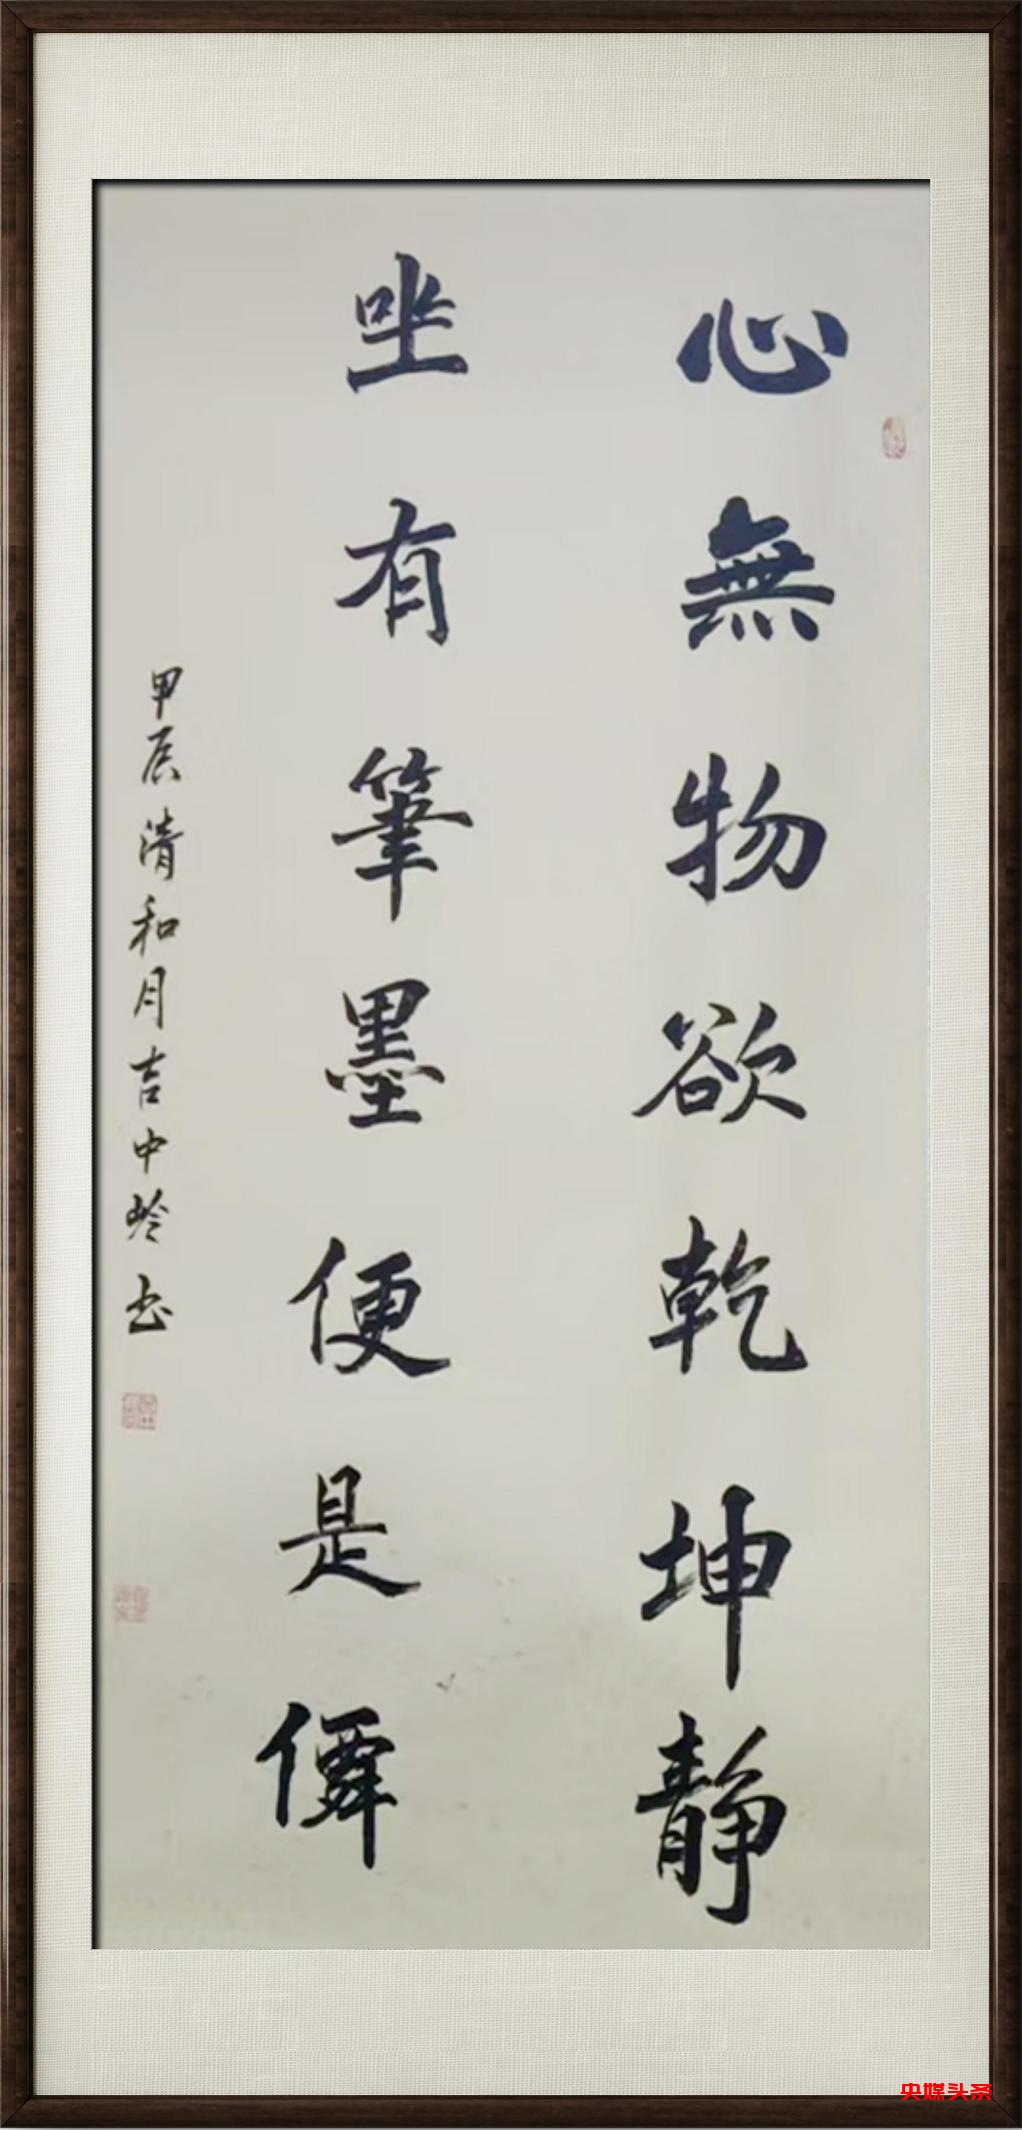 心無物欲乾坤靜
坐有筆墨便是僊
甲辰清和月吉中岭书
央媒头条